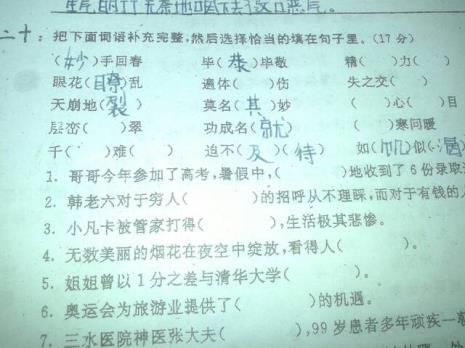 二十：把下面词语补充完整，然后选择恰当的填在句子里。(17 分)
(妙)手回春 毕(恭)毕敬 精( )力( )
眼花( )乱 遗体( )伤 失之交( )
天崩地(裂) 莫名(其)妙 ( )心( )目
层峦( )翠 功成名(就) ( )寒问暖
千( )难( ) 迫不(及)(待) 如(饥)似(渴)
1. 哥哥今年参加了高考，暑假中，( )地收到了 6 份录取
2. 韩老六对于穷人( )的招呼从不理睬，而对于有钱的
3. 小凡卡被管家打得( )，生活极其悲惨。
4. 无数美丽的烟花在夜空中绽放，看得人( )。
5. 姐姐曾以 1 分之差与清华大学( )。
6. 奥运会为旅游业提供了( )的机遇。
7. 三水医院神医张大夫( )，99 岁患者多年顽疾一